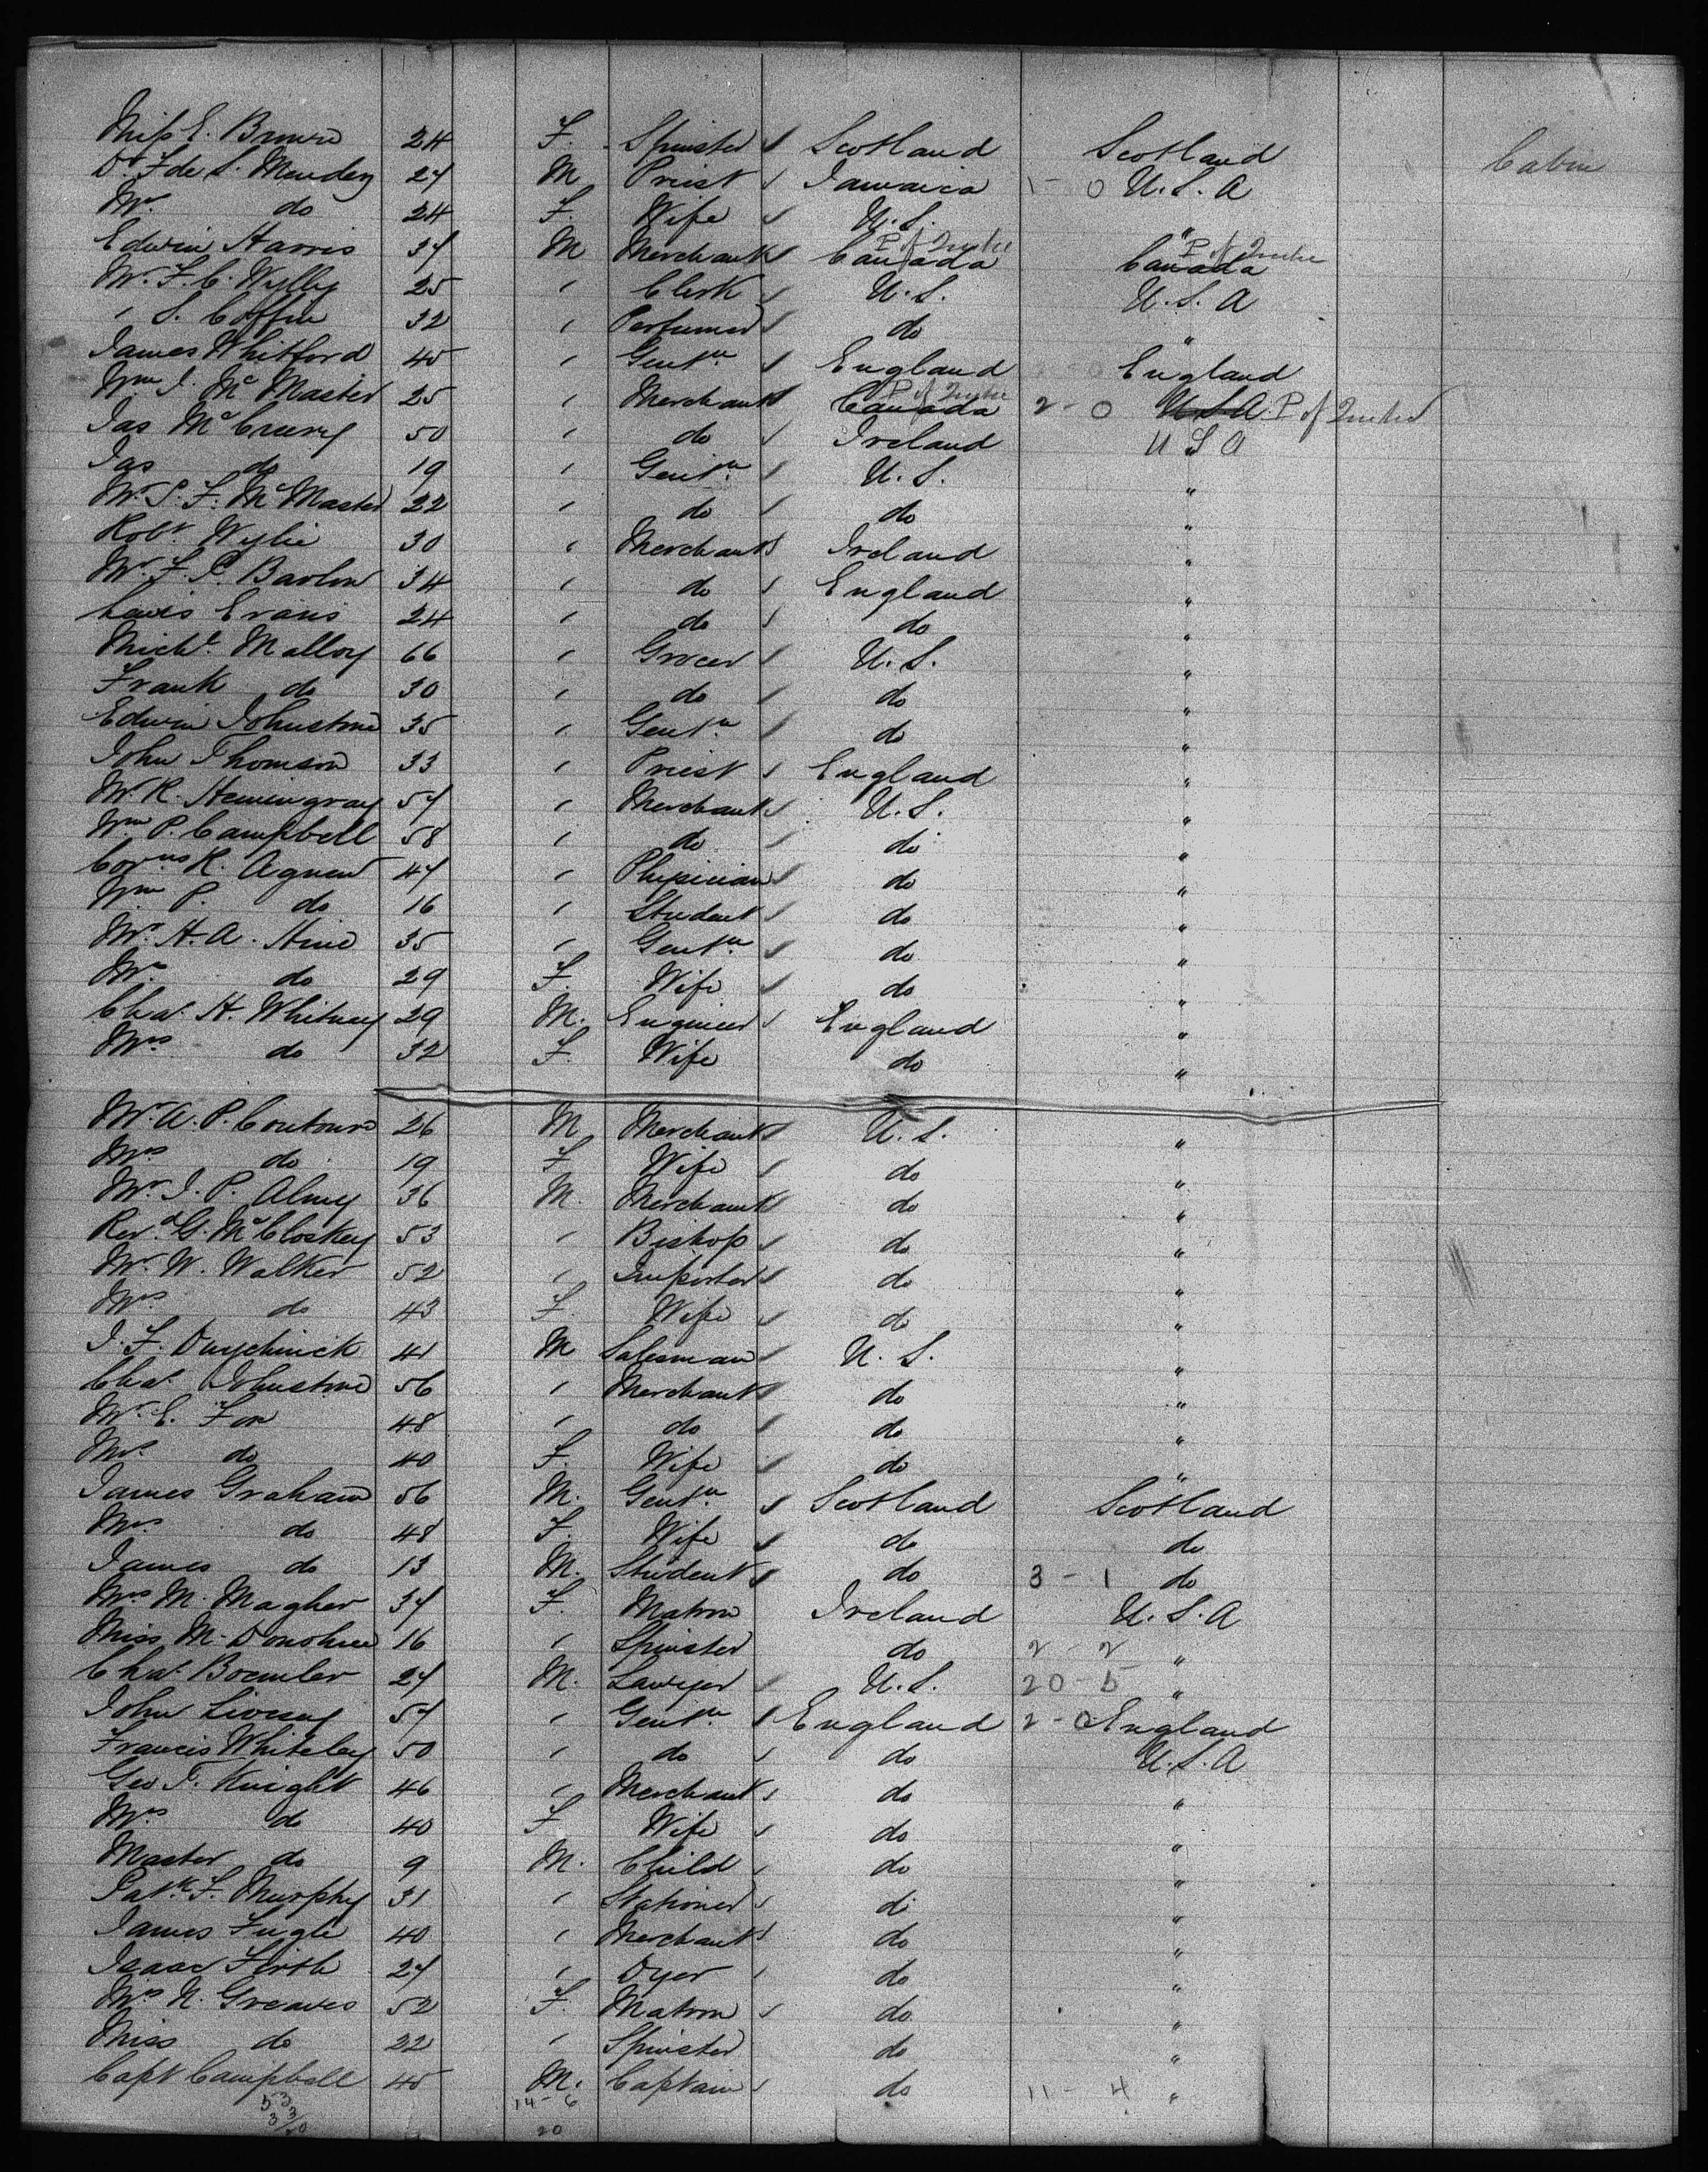 Cabin
Miss E. Brown 24 F. Spinster Scotland Scotland
Dr. F de S. Mendez 27 M Priest Jamaica 1 - 0 U.S.A
Mrs. do 24 F. Wife U.S. "
Edwin Harris 37 M Merchant Canada P of Quebec Canada P of Quebec
Mr. F. C. Wylly 25 " Clerk U.S. U.S.A
" S. Coffin 32 " Perfumer do "
James Whitford 45 " Gentn. England England
Wm J. McMaster 25 " Merchant Canada P of Quebec 2 - 0 U.S.A. P of Quebec
Jas McCreery 50 " do Ireland U S A
Jas do 19 " Gentn. U.S. "
Mr. S. F. McMaster 22 " do do "
Robt. Wylie 30 " Merchant Ireland "
Mr. F. P. Barlow 34 " do England "
Lewis Evans 24 " do do "
Michl. Malloy 66 " Grocer U.S. "
Frank do 30 " do do "
Edwin Johnstone 35 " Gentn do "
John Thomson 33 " Priest England "
W. R. Hemingray 57 " Merchant U.S. "
Wm P. Campbell 58 " do do "
Corns R. Agnew 47 " Physician do "
Wm P. do 16 " Student do "
Mr. H. A. Hine 35 " Gentn. do "
Mrs. do 29 F. Wife do "
Chas. H. Whitney 29 M. Engineer England "
Mrs do 32 F. Wife do "
Mr A. P. 26 M Merchant U.S. "
Mrs do 19 F Wife do "
Mr. J. P. Almy 36 M. Merchant do "
Revd. G. McCloskey 53 " Bishop do "
Mr. W. Walker 52 " Importer do "
Mrs do 43 F. Wife do "
J. F. Duychinick 41 M Salesman U.S. "
Chas. Johnstone 56 " Merchant do "
Mr. E. Fox 48 " do do "
Mrs. do 40 F. Wife do "
James Graham 56 M. Gentn. Scotland Scotland
Mrs. do 48 F. Wife do do
James do 13 M. Student do 3 - 1 do
Mrs M. Magher 37 F. Matron Ireland U.S.A
Miss M. Donohue 16 " Spinster do 2 - 2 "
Chas. Boemler 27 M. Lawyer U.S. 20 - 5 "
John Livesey 57 " Gentn. England 2 - 0 England
Francis Whiteley 50 " do do U.S.A
Geo T. Knight 46 " Merchant do "
Mrs. do 40 F Wife do "
Master do 9 M. Child do "
Patk. F. Murphy 31 " Stationer do "
James Fugle 40 " Merchant do "
Isaac Firth 27 " Dyer do "
Mrs N. Greaves 52 F. Matron do "
Miss do 22 " Spinster do "
Capt Campbell 45 M. Captain do 11 - 4 "
53 14 - 6
20